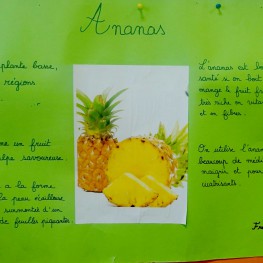 Ananas
plante basse,
régions
un fruit
savoureuse
a la forme
peau écailleuse
surmonté d'un
de feuilles piquantes.
L'ananas est bon
santé si on boit
mange le fruit
très riche en
et en fibres.
On utilise l'ananas
beaucoup de
maigrir et pour
cicatrisants.